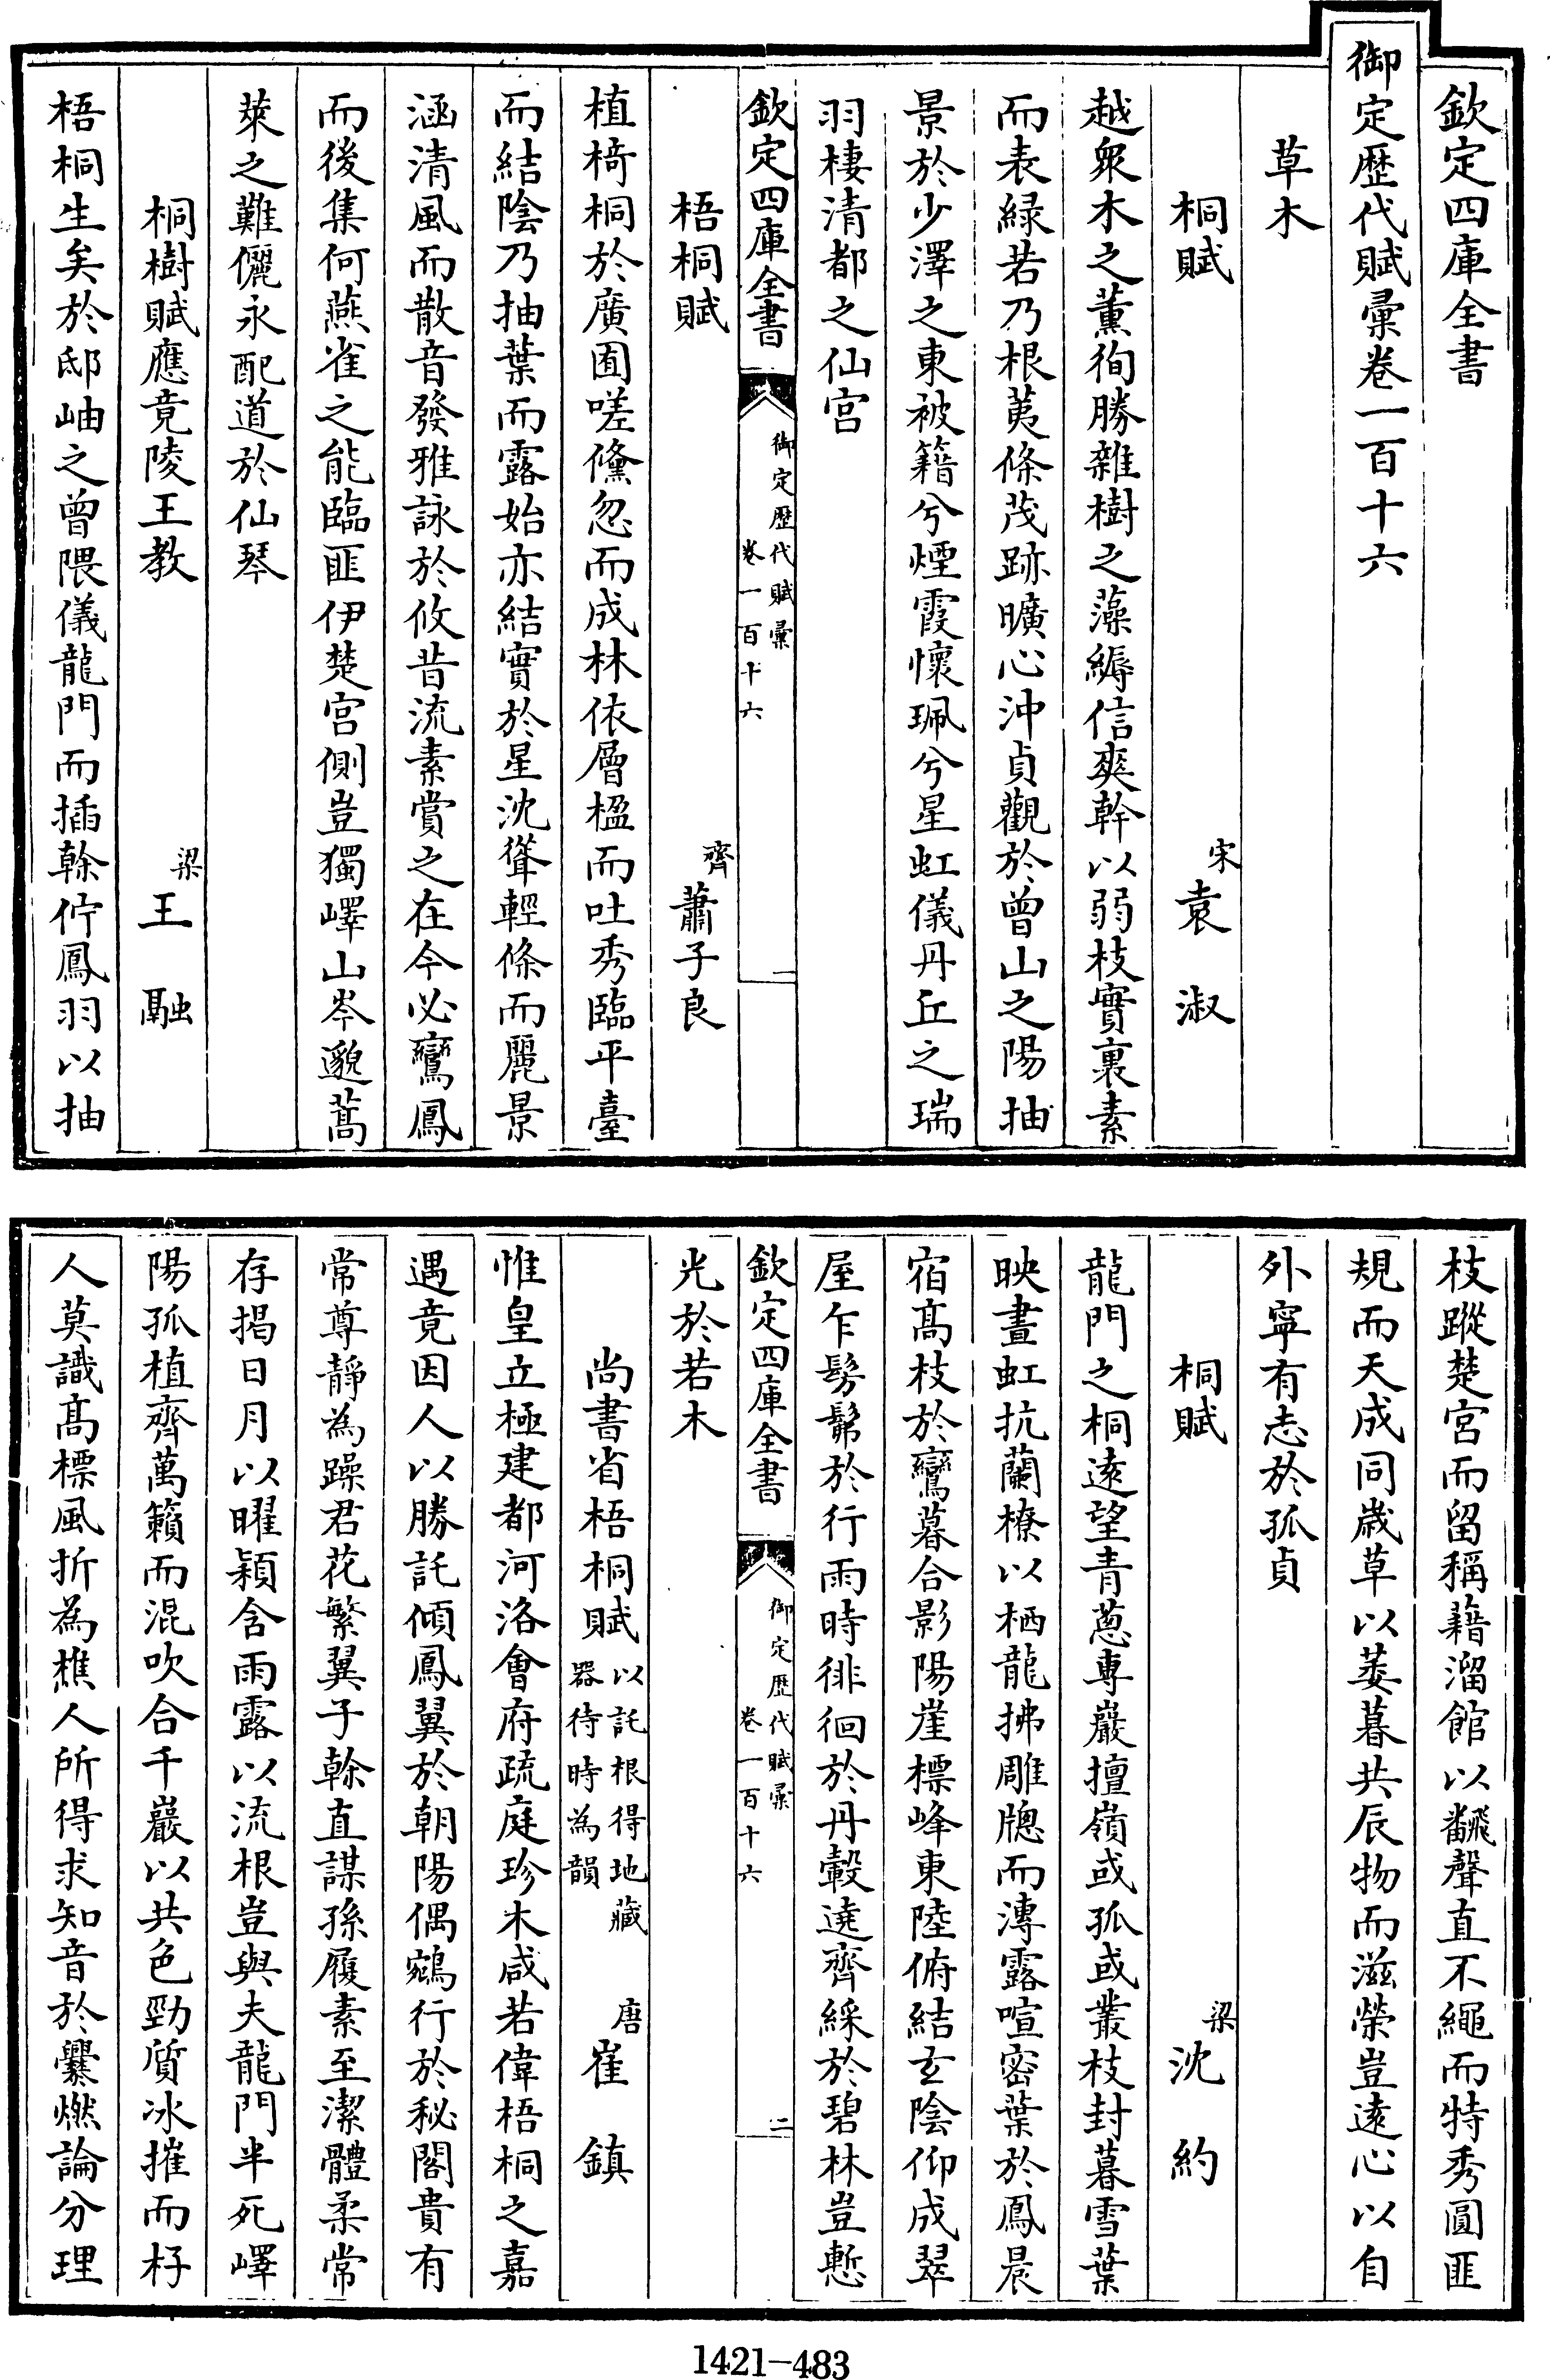 欽定四庫全書
御定歷代賦彙卷一百十六
草木
桐賦 宋 袁淑
越衆木之薰徇勝雜樹之藻縟信爽幹以弱枝實裏素
而表綠若乃根荑條茂跡曠心沖貞觀於曾山之陽抽
景於少澤之東被籍兮煙霞懷珮兮星虹儀丹丘之瑞
羽棲清都之仙宮
欽定四庫全書 御定歷代賦彙 卷一百十六 一
梧桐賦 齊 蕭子良
植椅桐於廣囿嗟儵忽而成林依層楹而吐秀臨平臺
而結陰乃抽葉而露始亦結實於星沈聳輕條而麗景
涵清風而散音發雅詠於攸昔流素賞之在今必鸞鳳
而後集何燕雀之能臨匪伊楚宮側豈獨嶧山岑邈蒿
萊之難儷永配道於仙琴
桐樹賦應竟陵王教 梁 王融
梧桐生矣於邸岫之曾隈儀龍門而插幹佇鳳羽以抽
枝蹤楚宮而留稱藉溜館以飜聲直不繩而特秀圓匪
規而天成同歲草以萎暮共辰物而滋榮豈遠心以自
外寧有志於孤貞
桐賦 梁 沈約
龍門之桐遠望青蔥專巖擅嶺或孤或叢枝封暮雪葉
映晝虹抗蘭橑以栖龍拂雕牕而漙露喧密葉於鳳晨
宿高枝於鸞暮合影陽崖標峰東陸俯結玄陰仰成翠
屋乍髣髴於行雨時徘徊於丹轂遶齊綵於碧林豈慙
欽定四庫全書 御定歷代賦彙 卷一百十六 二
光於若木
尚書省梧桐賦 以託根得地藏器待時為韻 唐 崔鎮
惟皇立極建都河洛會府疏庭珍木咸若偉梧桐之嘉
遇竟因人以勝託傾鳳翼於朝陽偶鵷行於秘閣貴有
常尊靜為躁君花繁翼子榦直謀孫履素至潔體柔常
存揭日月以曜穎含雨露以流根豈與夫龍門半死嶧
陽孤植齊萬籟而混吹合千巖以共色勁質冰摧而杍
人莫識高標風折為樵人所得求知音於爨燃論分理
1421-483